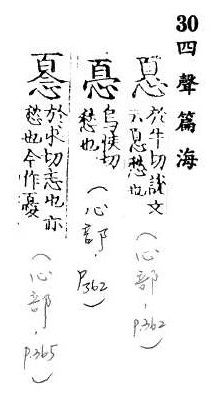 30 四聲篇海
於牛切說文
愁也
(心部, p.362)
烏侯切
愁也
(心部, p.362)
於求切志也亦
愁也今作憂
(心部, p.365)